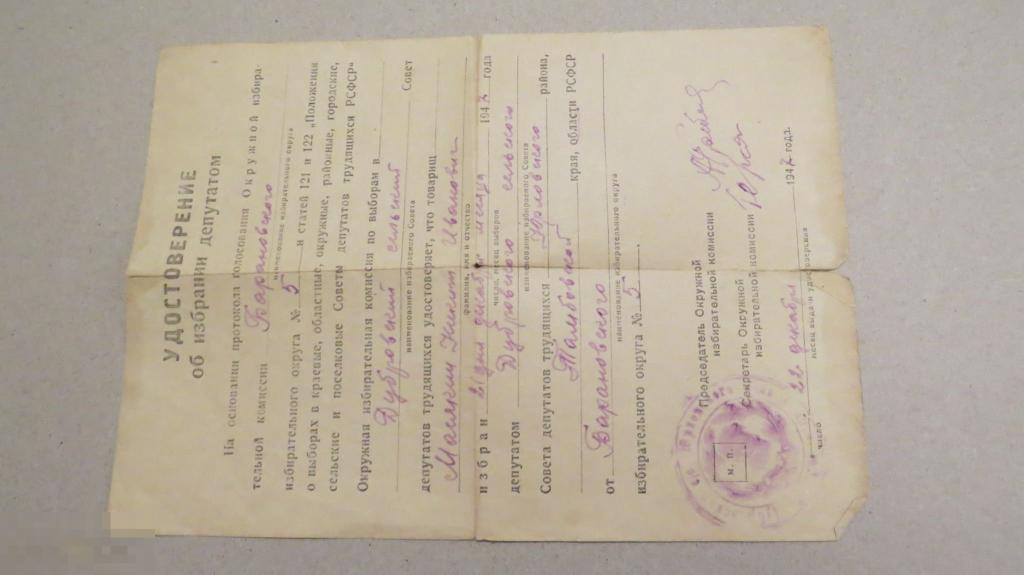 УДОСТОВЕРЕНИЕ
об избрании депутатом
На основании протокола голосования Окружной избира-
тельной комиссии Барановского
наименование избирательного округа
избирательного округа № 5 и статей 121 и 122 „Положения
о выборах в краевые, областные, окружные, районные, городские,
сельские и поселковые Советы депутатов трудящихся РСФСР“
Окружная избирательная комиссия по выборам в
Дубровский сельский Совет
наименование избираемого Совета
депутатов трудящихся удостоверяет, что товарищ
Никит Иванович
фамилия, имя и отчество
избран 21 дня декабря месяца 1947 года
число, месяц выборов
депутатом Дубровского сельского
наименование избираемого Совета
Совета депутатов трудящихся Юрловского района,
Тамбовской края, области РСФСР
от Барановского
наименование избирательного округа
избирательного округа № 5.
Председатель Окружной
избирательной комиссии
Секретарь Окружной
избирательной комиссии
М. П.
22 декабря 1947 года.
число месяц выдачи удостоверения